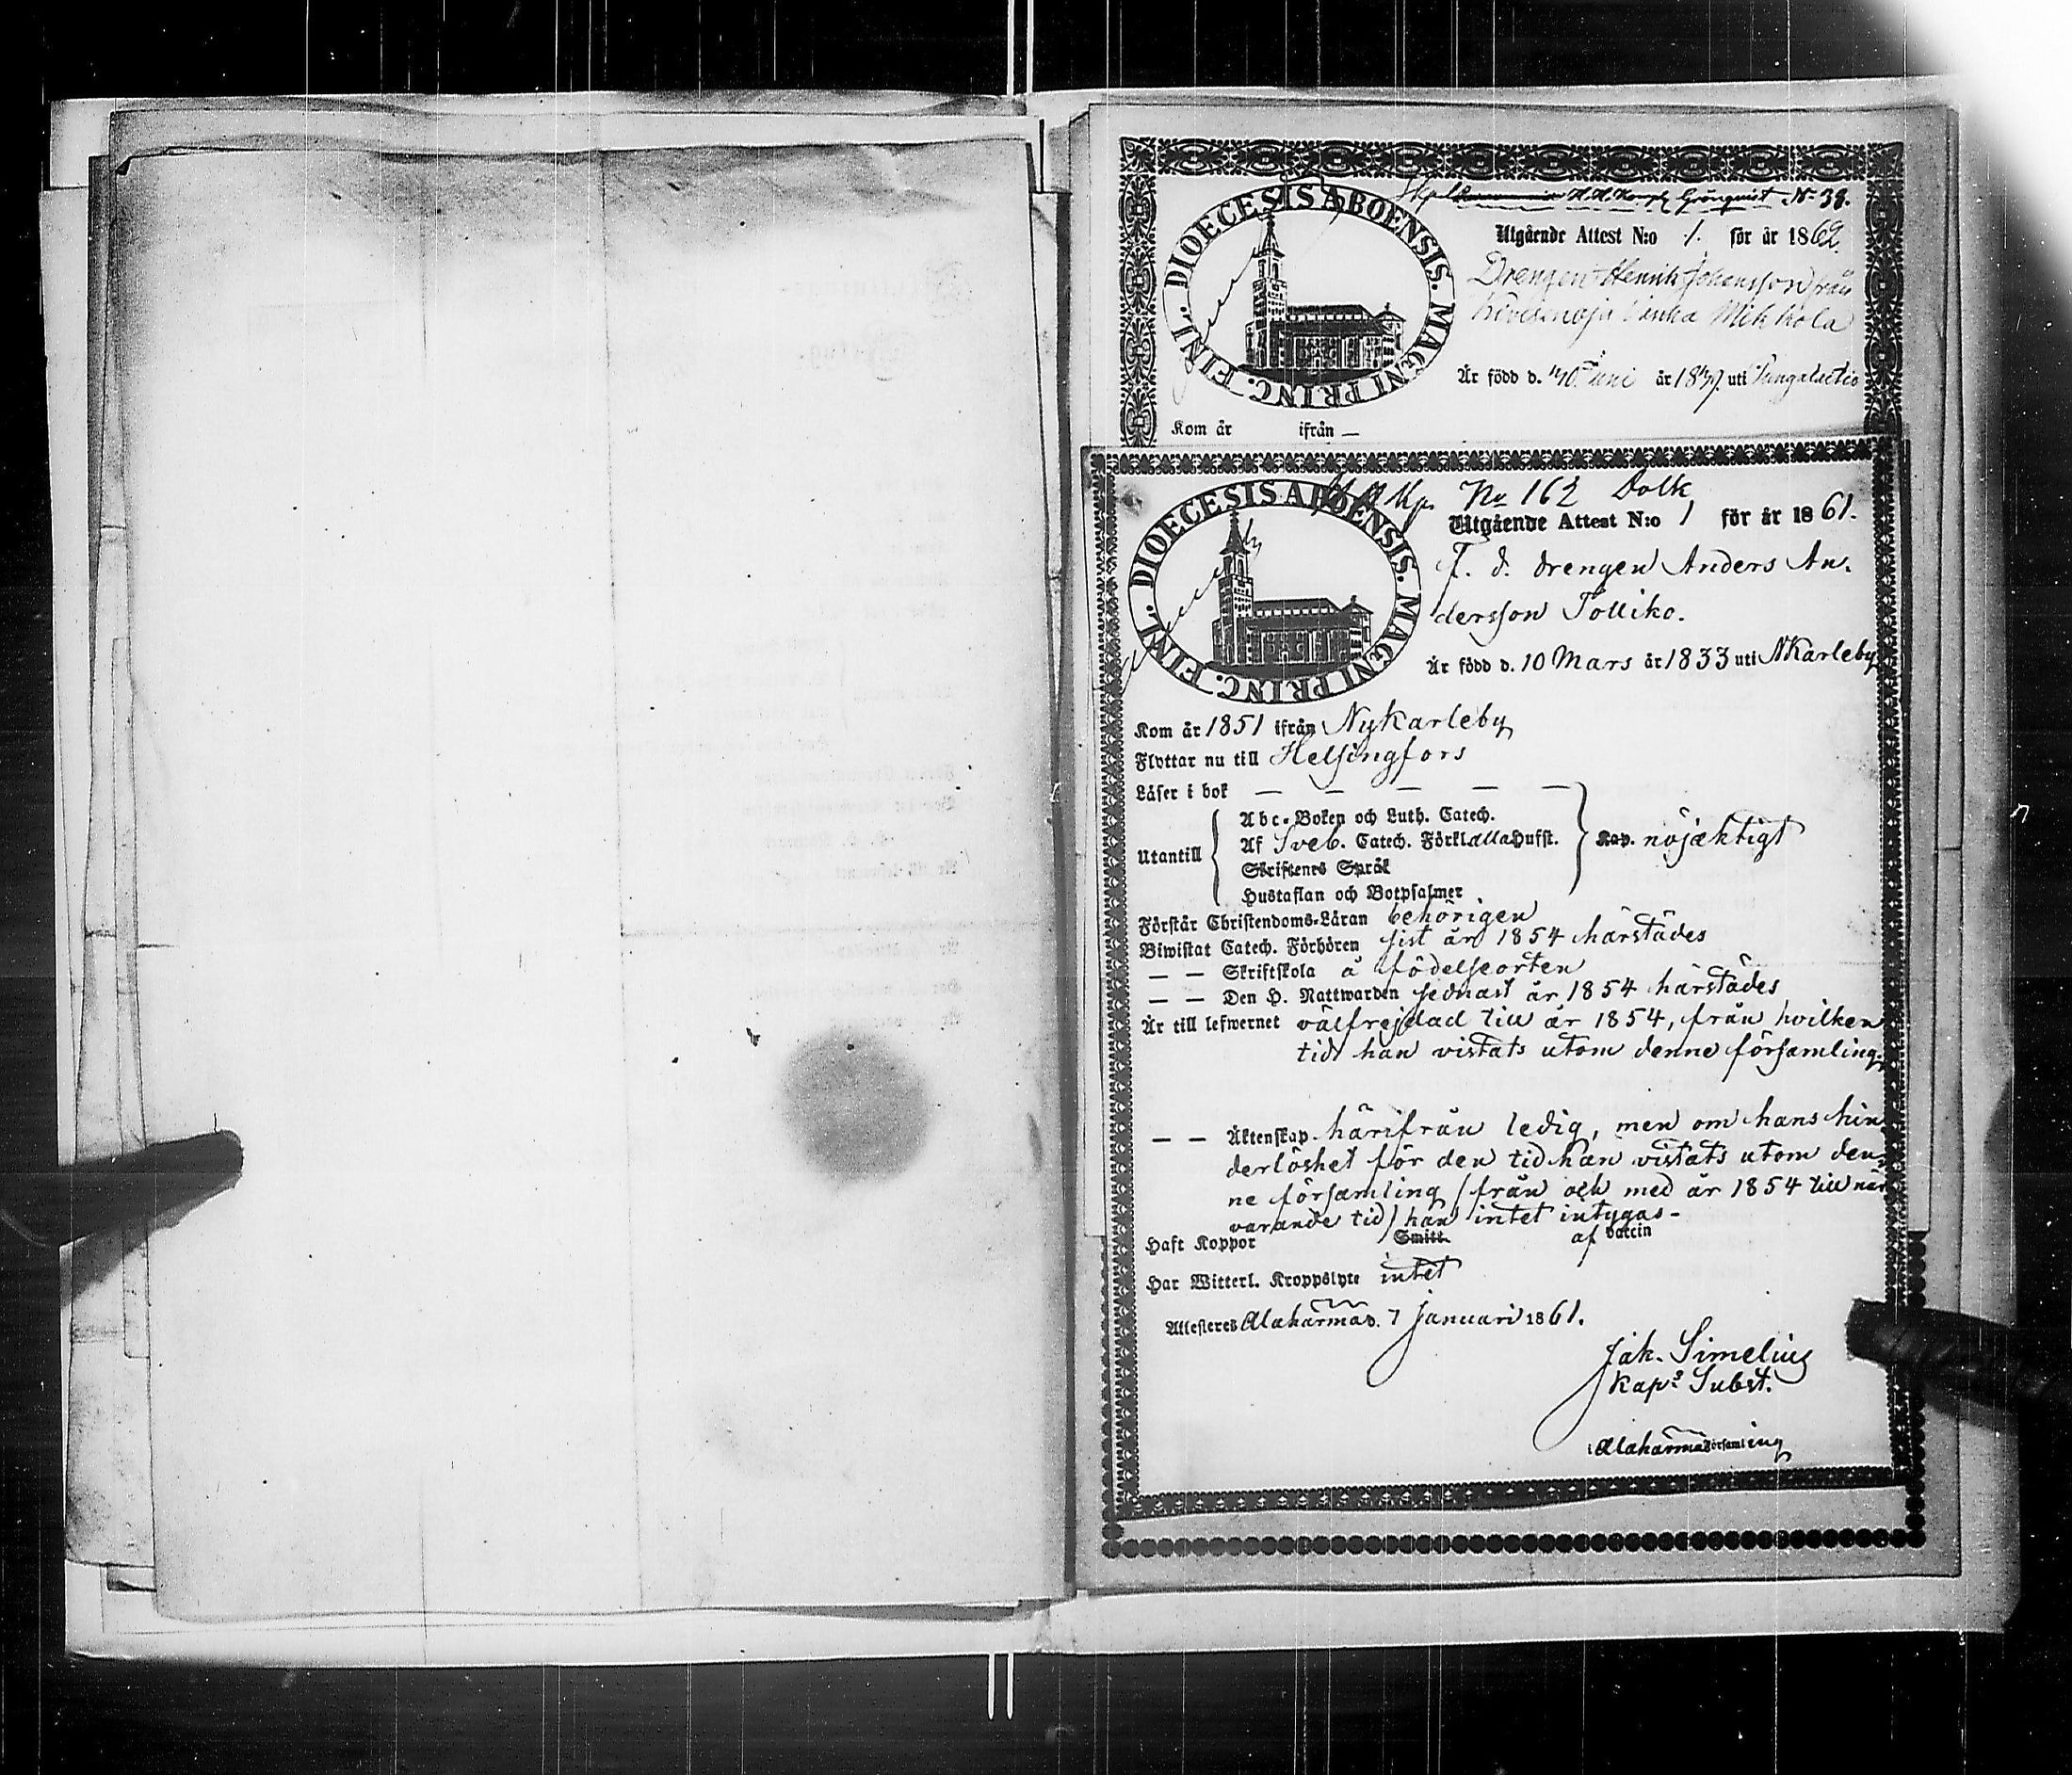 N:o 38.
DIOECESIS ABOENSIS. MAGNI PRINC. FINL.
Utgående Attest N:o 1. för år 1862.
Drengen Henrik Johansson från
Mikkola
Är född d. Juni år 18 uti
Kom år ifrån —
No 162 Dolk
DIOECESIS ABOENSIS. MAGNI PRINC. FINL.
Utgående Attest N:o 1 för år 1861.
F. d. drengen Anders An-
dersson Tolliko.
Är född d. 10 Mars år 1833 uti NKarleby
Kom år 1851 ifrån Nykarleby
Flyttar nu till Helsingfors
Läser i bok — — — — —
Abc-Boken och Luth. Catech.
Utantill Af Sveb. Catech. Förkl. alla Hufst. Kap. nöjaktigt
Skriftenes Språk
Hustaflan och Botpsalmer
Förstår Christendoms-Läran behörigen
Biwistat Catech. Förhören sist år 1854 härstädes
— — Skriftskola å födelseorten
— — Den H. Nattwarden sednast år 1854 härstädes
Är till lefwernet välfrejdad till år 1854, från hvilken
tid han vistats utom denne församling.
— — Äktenskap härifrån ledig, men om hans hin
derlöshet för den tid han vistats utom den-
ne församling (från och med år 1854 till när
varande tid) kan intet intygas-
Haft Koppor Smitt. af vaccin
Har Witterl. Kroppslyte intet
Attesteres Alahärmäs. 7 Januari 1861.
Jak. Simelius
Kaps Subst.
i Alahärmä församling